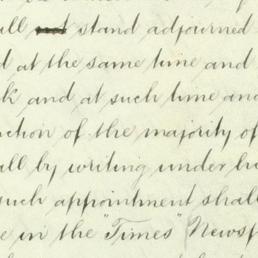 all stand adjourned
d at the same time and
k and at such time and
ction of the majority of
all by writing under h
such appointment shall
e in the "Times" Newsp